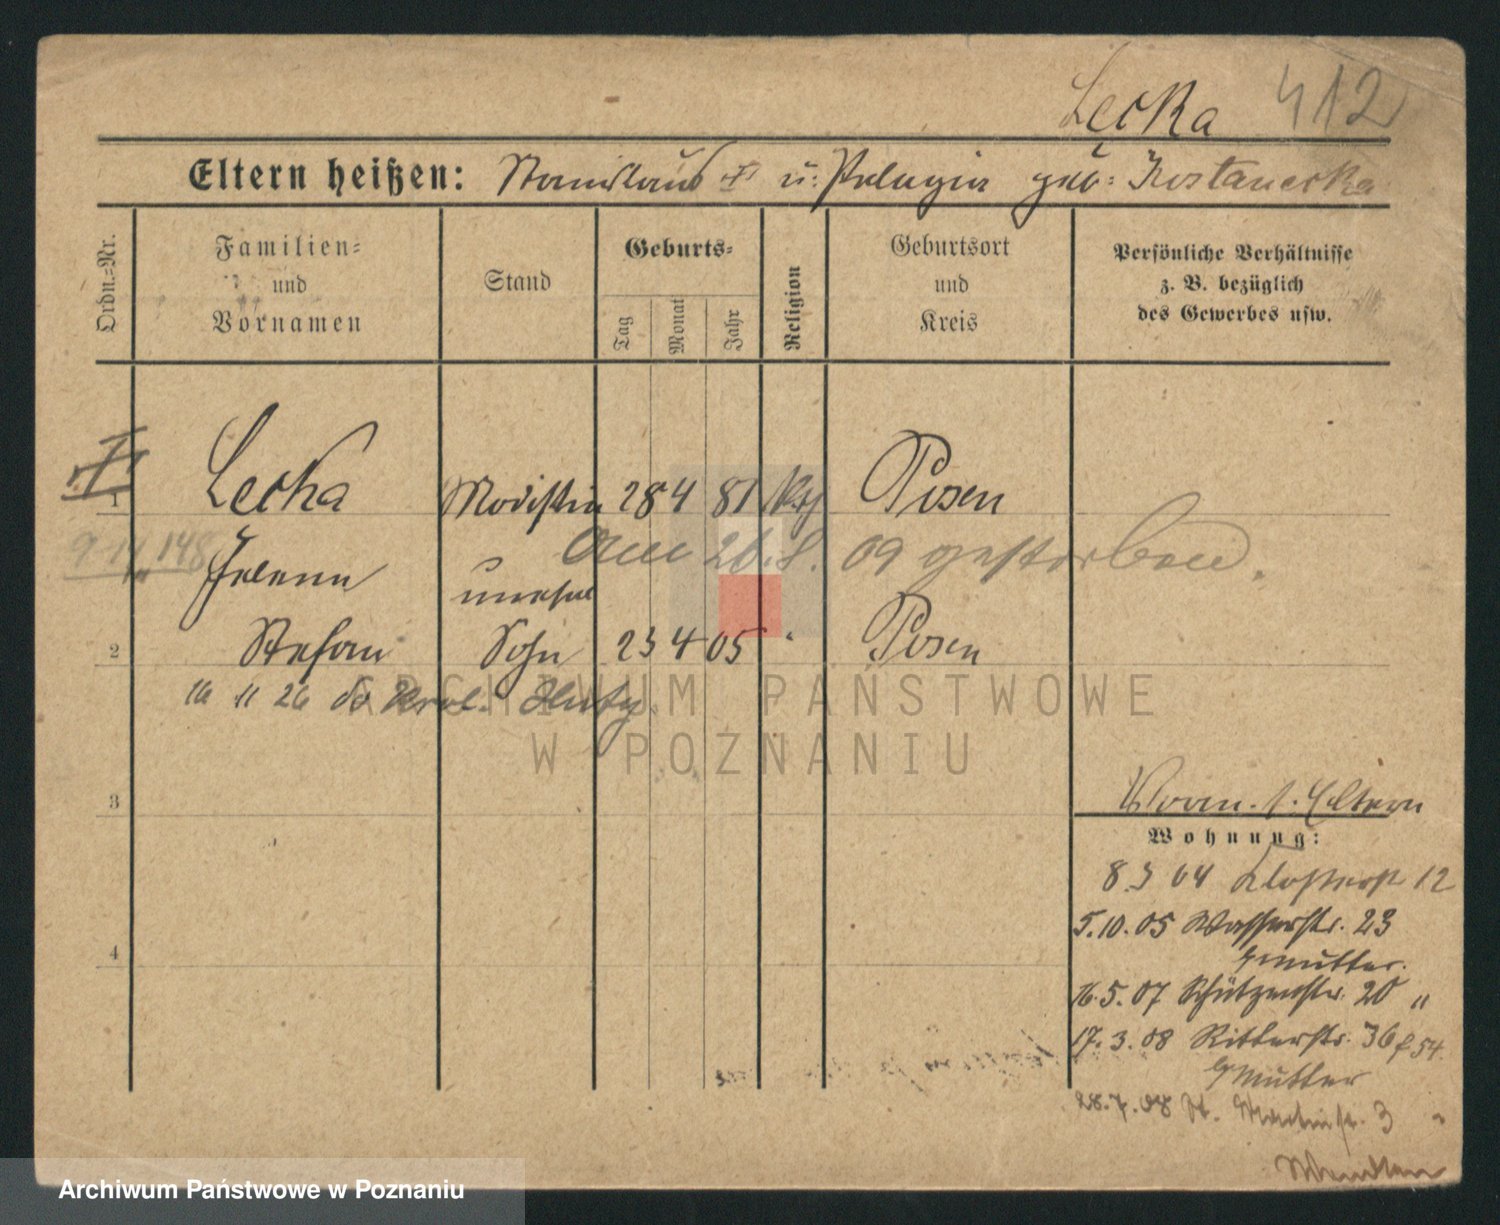 Lecka 412
Eltern heißen: Stanislaus † u. Pelagia geb: Kostanecka
Ordn.-Nr.
Familien-
und
Vornamen
Stand
Geburts-
Tag
Monat
Jahr
Religion
Geburtsort
und
Kreis
Persönliche Verhältnisse
z. B. bezüglich
des Gewerbes usw.
1 Lecka Modistin 28 4 81 kth Posen
Am 26.8. 09 gestorben.
Helene unehel
2 Stefan Sohn 23 4 05 " Posen
16 11 26 do Krol. Huty
3
4
Eltern
Wohnung:
8.3 04 Klosterst 12
5.10.05 Wasserstr. 23
Gmutter.
16.5.07 Schützenstr. 20 "
17.3.08 Ritterstr. 36
Gmutter
28.7.08 St. Martinstr. 3
ARCHIWUM PAŃSTWOWE
W POZNANIU
Archiwum Państwowe w Poznaniu